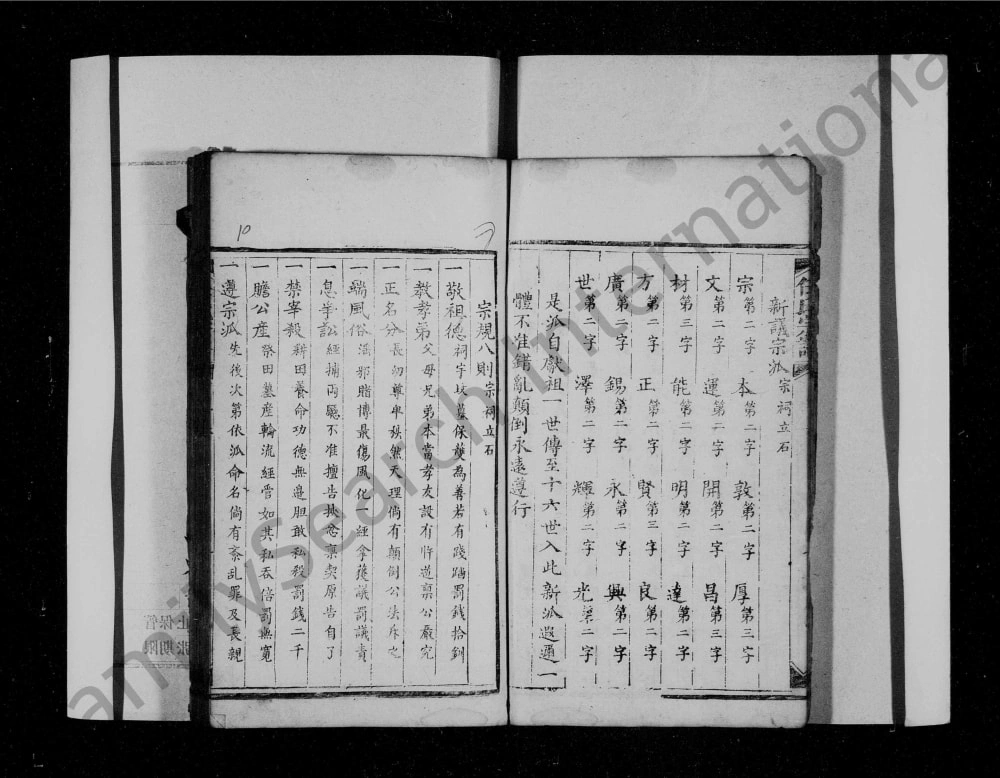 新議宗派宗祠立石
宗第二字 本第二字 敦第二字 厚第三字
文第二字 運第二字 開第二字 昌第三字
材第三字 能第二字 明第二字 達第二字
方第二字 正第二字 賢第三字 良第二字
廣第二字 錫第二字 永第二字 興第二字
世第二字 澤第二字 輝第三字 光第二字
是派自獻祖一世傳至十六世入此新派遐邇一
體不准錯亂顛倒永遠遵行
宗規八則宗祠立石
一敬祖德祠宇坟墓保護為善若有踐踏罰錢拾釧
一教孝弟父母兄弟本當孝友設有忤逆稟公嚴究
一正名分長幼尊卑秩然天理倘有顛倒公法斥之
一端風俗淫邪賭博最傷風化一經拿獲議罰議責
一息爭訟經捕両愿不准擅告挾忿稟契原告自了
一禁宰殺耕田養命功德無邊胆敢私殺罰錢二千
一贍公產祭田墓產輪流經管如其私吞倍罰無寬
一遵宗派先後次第依派命名倘有紊乱罪及長親
10
FamilySearch International